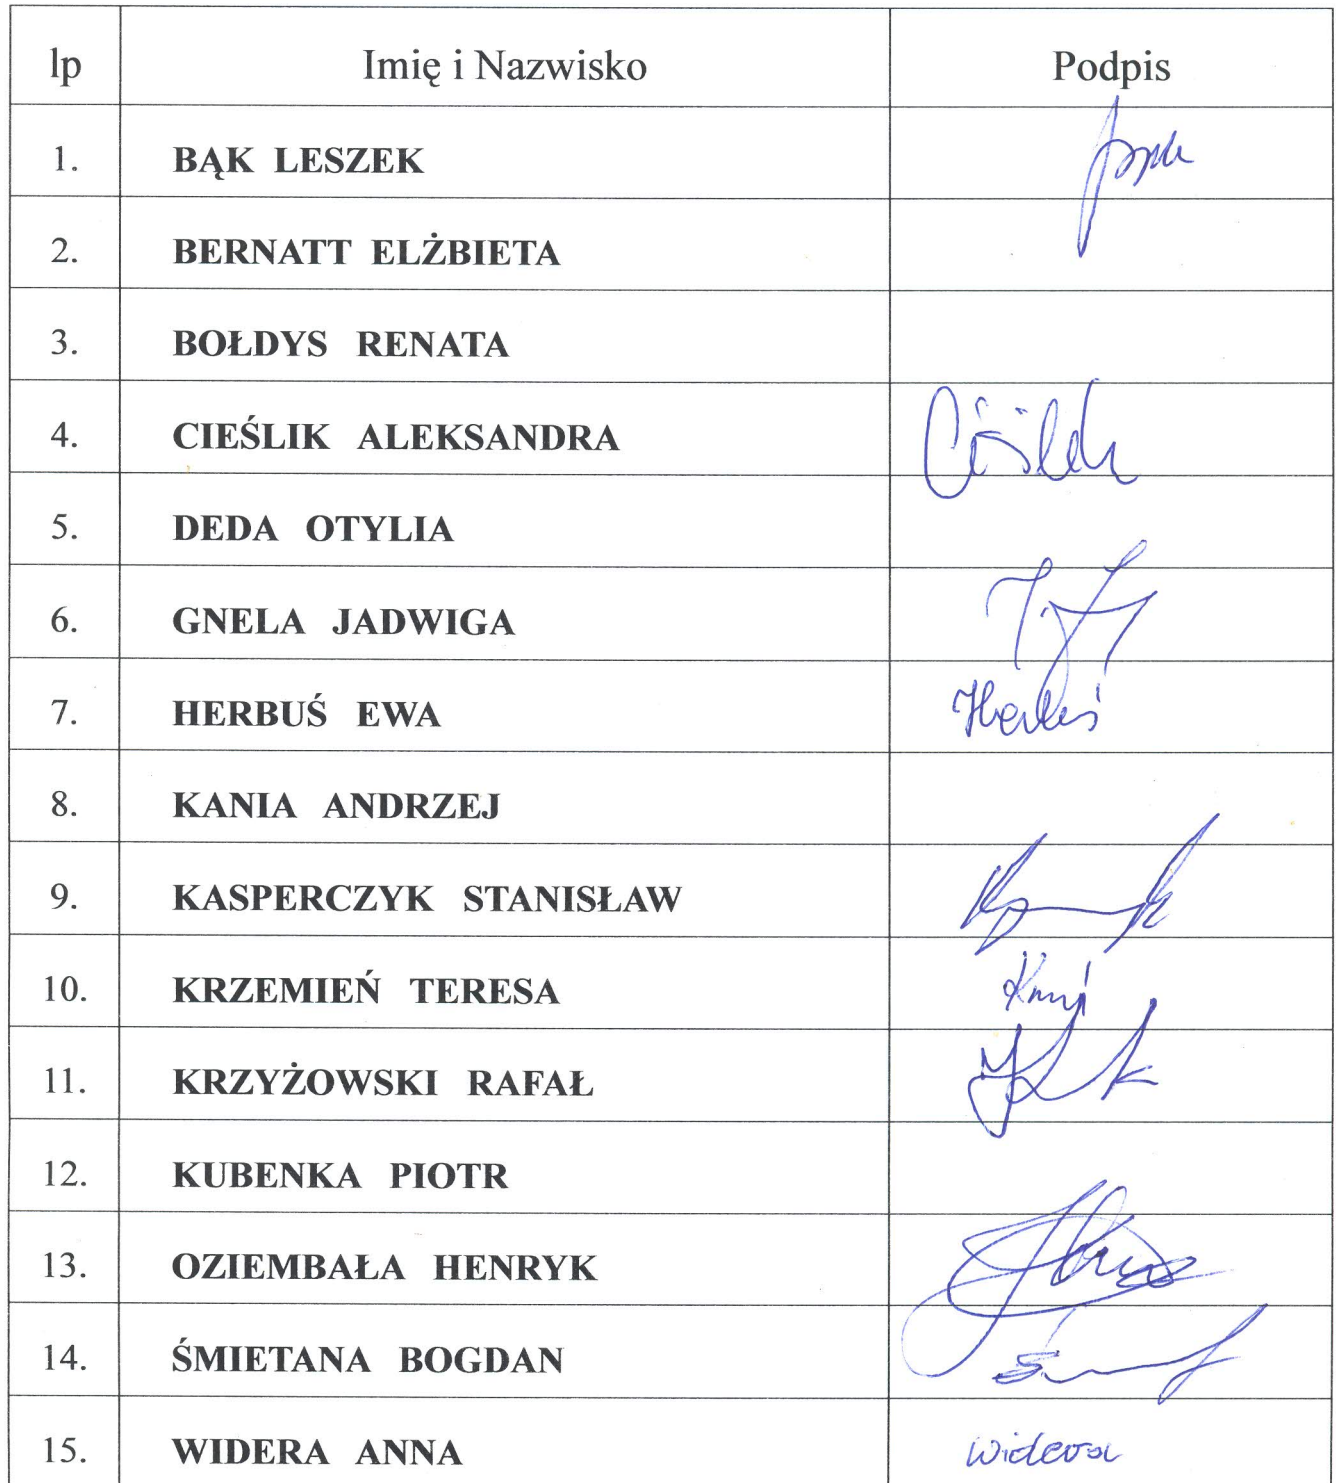 lp Imię i Nazwisko Podpis
1. BĄK LESZEK
2. BERNATT ELŻBIETA
3. BOŁDYS RENATA
4. CIEŚLIK ALEKSANDRA Cieślik
5. DEDA OTYLIA
6. GNELA JADWIGA
7. HERBUŚ EWA Herbuś
8. KANIA ANDRZEJ
9. KASPERCZYK STANISŁAW
10. KRZEMIEŃ TERESA
11. KRZYŻOWSKI RAFAŁ
12. KUBENKA PIOTR
13. OZIEMBAŁA HENRYK
14. ŚMIETANA BOGDAN
15. WIDERA ANNA Widera